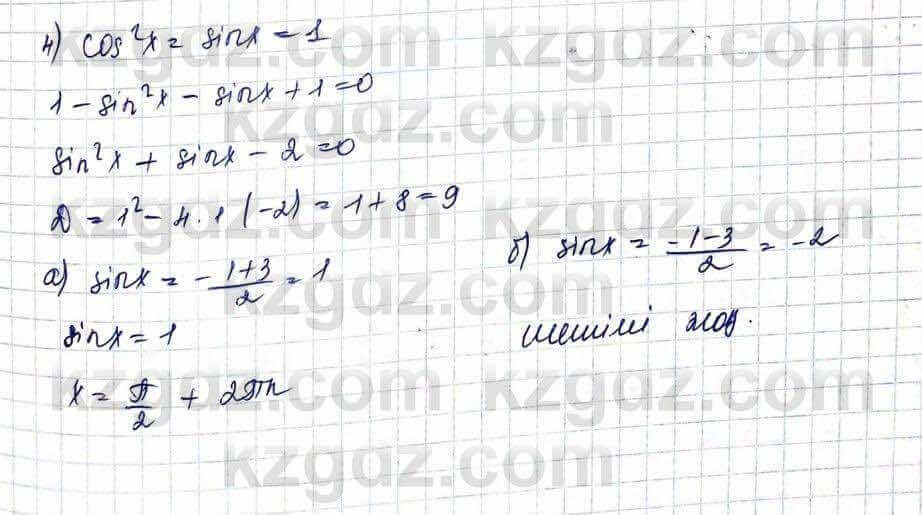 4) cos²x = sinx = 1
1 - sin²x - sinx + 1 = 0
sin²x + sinx - 2 = 0
D = 1² - 4 · 1 (-2) = 1 + 8 = 9
a) sinx = - 1+3/2 = 1
sinx = 1
x = π/2 + 2πn
б) sinx = -1-3/2 = -2
шешімі жоқ.
kzgdz.com
kzgdz.com
kzgdz.com
kzgdz.com
kzgdz.com
kzgdz.com
kzgdz.com
kzgdz.com